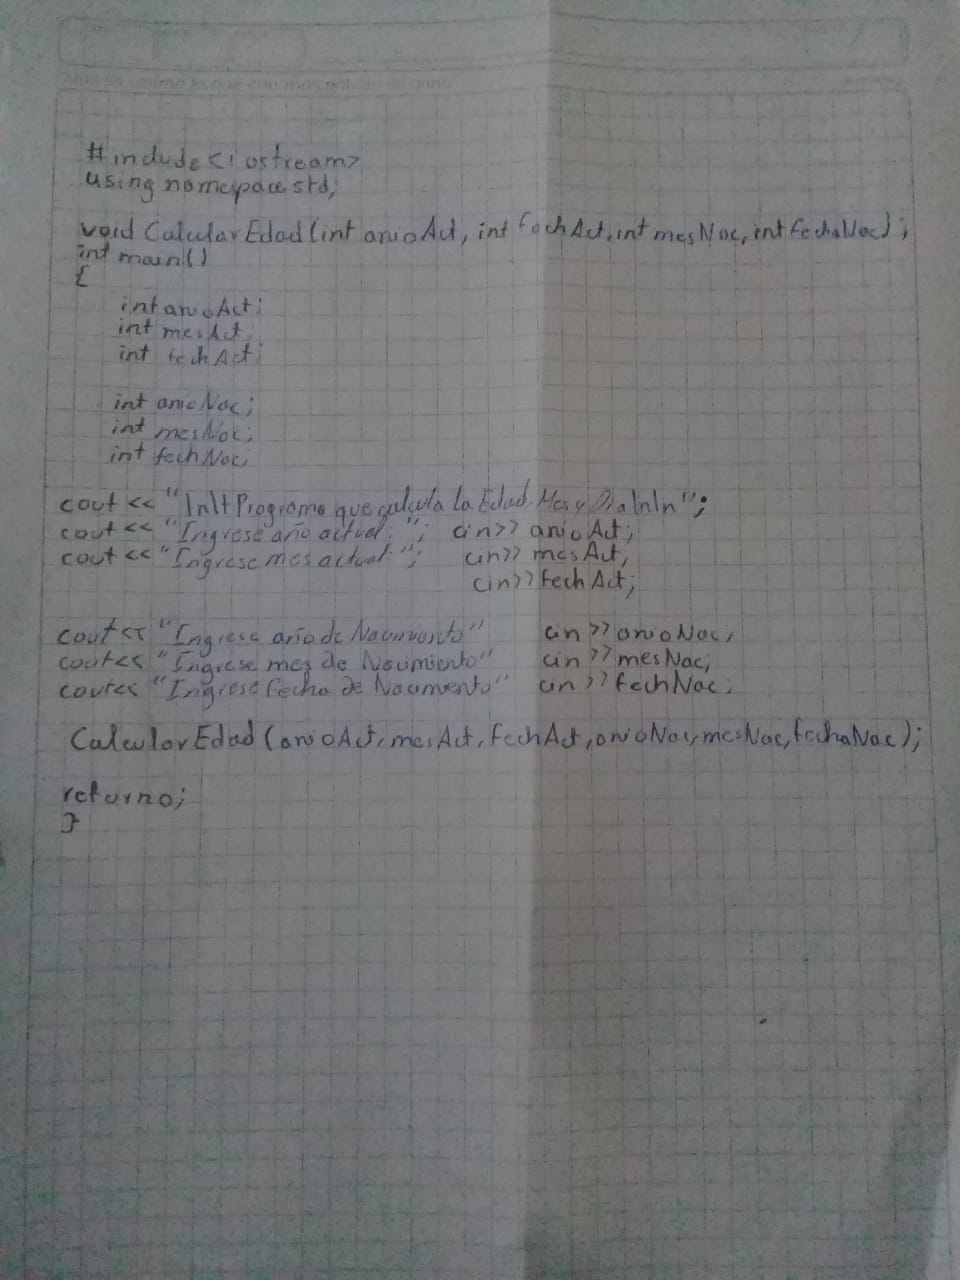 #include <iostream>
using namespace std;
void CalcularEdad(int anioAct, int fechAct, int mesNac, int fechaNac);
int main()
{
int anioAct;
int mesAct;
int fechAct;
int anioNac;
int mesNac;
int fechNac;
cout << "\n\tPrograma que calcula la Edad, Mes y Dia\n\n";
cout << "Ingrese año actual: "; cin>> anioAct;
cout << "Ingrese mes actual: "; cin>> mesAct;
cin>>fechAct;
cout << "Ingrese año de Nacimiento" cin >> anioNac;
cout << "Ingrese mes de Nacimiento" cin >> mesNac;
cout << "Ingrese fecha de Nacimento" cin >> fechNac;
CalcularEdad (anioAct, mesAct, fechAct, anioNac, mesNac, fechaNac);
return 0;
}